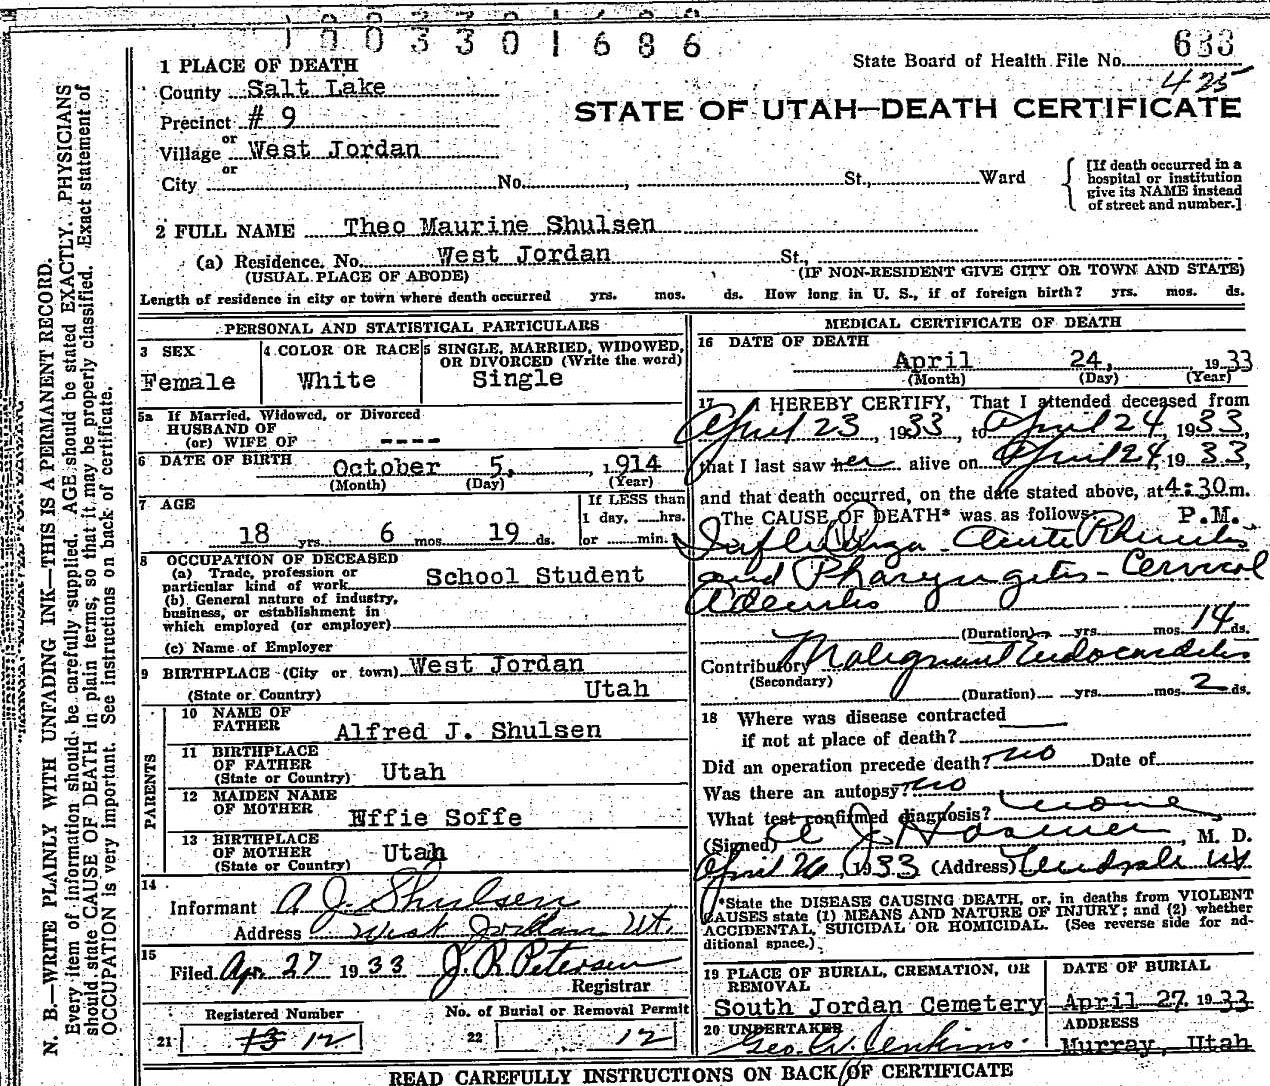 1003301686
State Board of Health File No. 633
425
STATE OF UTAH—DEATH CERTIFICATE
1 PLACE OF DEATH
County Salt Lake
Precinct # 9
or
Village West Jordan
or
City No. , St., Ward
[If death occurred in a
hospital or institution
give its NAME instead
of street and number.]
2 FULL NAME Theo Maurine Shulsen
(a) Residence. No. West Jordan St.,
(USUAL PLACE OF ABODE) (IF NON-RESIDENT GIVE CITY OR TOWN AND STATE)
Length of residence in city or town where death occurred yrs. mos. ds. How long in U. S., if of foreign birth? yrs. mos. ds.
N. B.—WRITE PLAINLY WITH UNFADING INK—THIS IS A PERMANENT RECORD.
Every item of information should be carefully supplied. AGE should be stated EXACTLY. PHYSICIANS
should state CAUSE OF DEATH in plain terms, so that it may be properly classified. Exact statement of
OCCUPATION is very important. See instructions on back of certificate.
PERSONAL AND STATISTICAL PARTICULARS
3 SEX
Female
4 COLOR OR RACE
White
5 SINGLE, MARRIED, WIDOWED,
OR DIVORCED (Write the word)
Single
5a If Married, Widowed, or Divorced
HUSBAND OF
(or) WIFE OF ----
6 DATE OF BIRTH October 5, 1914
(Month) (Day) (Year)
7 AGE
18 yrs. 6 mos. 19 ds.
If LESS than
1 day, hrs.
or min.
8 OCCUPATION OF DECEASED
(a) Trade, profession or
particular kind of work School Student
(b) General nature of industry,
business, or establishment in
which employed (or employer)
(c) Name of Employer
9 BIRTHPLACE (City or town) West Jordan
(State or Country) Utah
PARENTS
10 NAME OF
FATHER Alfred J. Shulsen
11 BIRTHPLACE
OF FATHER
(State or Country) Utah
12 MAIDEN NAME
OF MOTHER Effie Soffe
13 BIRTHPLACE
OF MOTHER
(State or Country) Utah
14
Informant A. J. Shulsen
Address West Jordan Ut.
15
Filed Apr. 27 1933 J. R. Petersen
Registrar
Registered Number
21 13 12
No. of Burial or Removal Permit
22 12
MEDICAL CERTIFICATE OF DEATH
16 DATE OF DEATH
April 24, 1933
(Month) (Day) (Year)
17 I HEREBY CERTIFY, That I attended deceased from
April 23, 1933, to April 24, 1933,
that I last saw her alive on April 24, 1933,
and that death occurred, on the date stated above, at 4:30 m.
The CAUSE OF DEATH* was as follows: P.M.
Influenza - Acute Rhinitis
and Pharyngitis - Cervical
Adenitis
(Duration) yrs. mos. 14 ds.
Contributory Malignant Endocarditis
(Secondary)
(Duration) yrs. mos. 2 ds.
18 Where was disease contracted
if not at place of death?
Did an operation precede death? no Date of
Was there an autopsy? no
What test confirmed diagnosis? none
(Signed) J. , M. D.
April 26 1933 (Address) Ut
*State the DISEASE CAUSING DEATH, or, in deaths from VIOLENT
CAUSES state (1) MEANS AND NATURE OF INJURY; and (2) whether
ACCIDENTAL, SUICIDAL OR HOMICIDAL. (See reverse side for ad-
ditional space.)
19 PLACE OF BURIAL, CREMATION, OR
REMOVAL
South Jordan Cemetery
DATE OF BURIAL
April 27. 1933
20 UNDERTAKER
Geo. W. Jenkins.
ADDRESS
Murray, Utah
READ CAREFULLY INSTRUCTIONS ON BACK OF CERTIFICATE